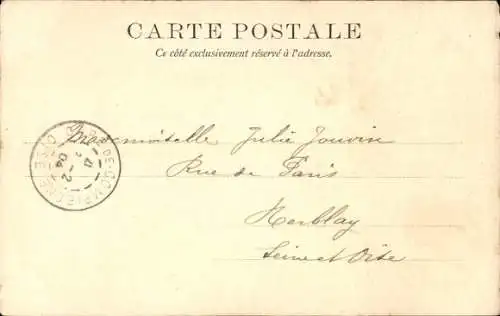 CARTE POSTALE
Ce côté exclusivement réservé à l'adresse.
Mademoiselle Julie Jouvin
Rue de Paris
Herblay
Seine et Oise
GARE DE COMPIEGNE
OISE
2
04